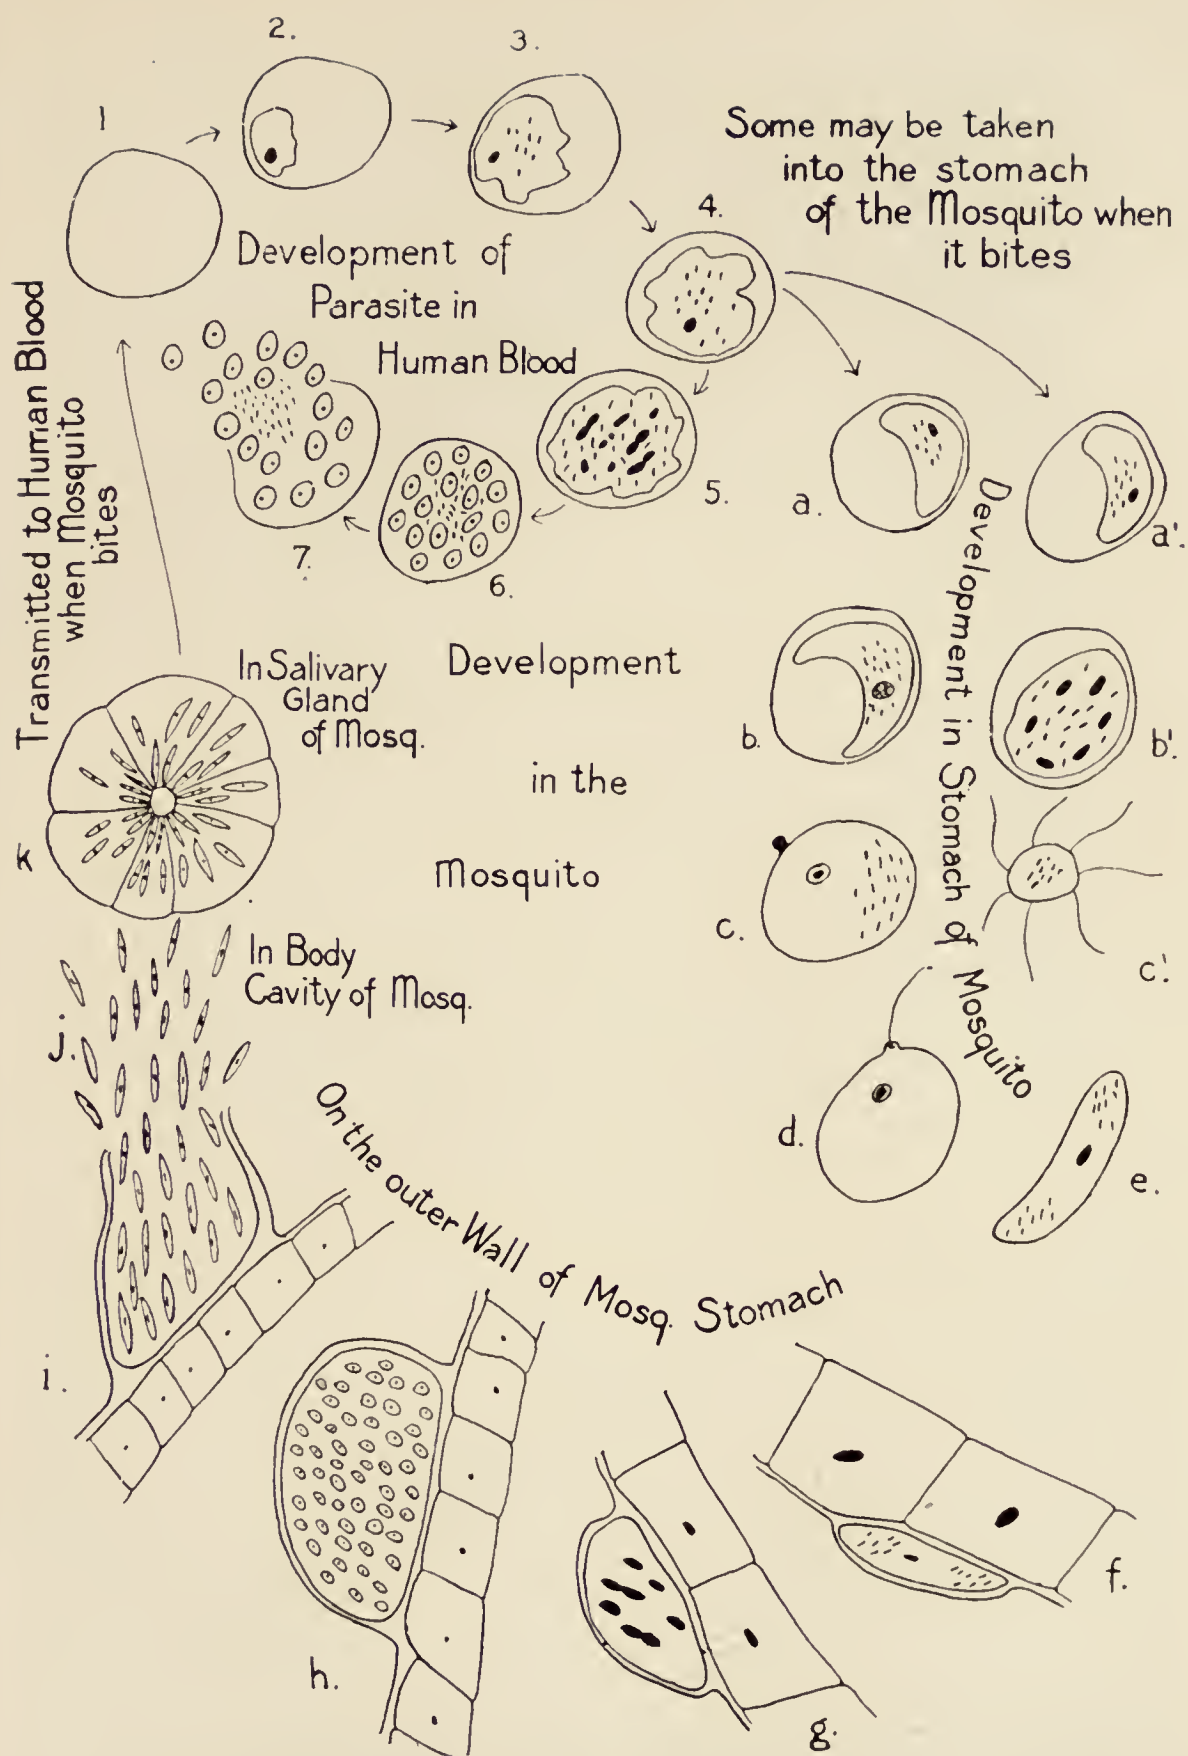 1
2.
3.
Some may be taken
into the stomach
of the Mosquito when
it bites
4.
Development of
Parasite in
Human Blood
5.
6.
7.
Transmitted to Human Blood
when Mosquito
bites
a.
a'.
Development in Stomach of Mosquito
b.
b'.
c.
c'.
d.
e.
In Salivary
Gland
of Mosq.
Development
in the
Mosquito
k
In Body
Cavity of Mosq.
j.
On the outer Wall of Mosq. Stomach
i.
h.
g.
f.